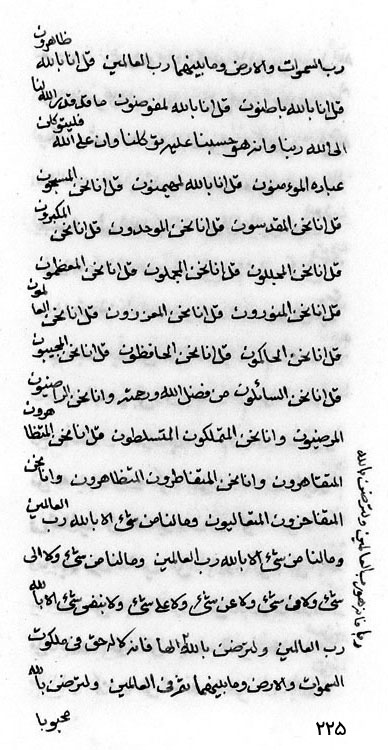 رب السموات والارض وما بينهما رب العالمين قل انا بالله ظاهرون
قل انا بالله باطنون قل انا بالله لمفوضون ما قد قدر الله لنا
الى الله ربنا وانه هو حسبنا عليه توكلنا وان على الله فليتوكلن
عباده المؤمنون قل انا بالله لمهيمنون قل انا نحن المسبحون
قل انا نحن المقدسون قل انا نحن الموحدون قل انا نحن المكبرون
قل انا نحن المجللون قل انا نحن المجملون قل انا نحن المعظمون
قل انا نحن المنورون قل انا نحن المعززون قل انا نحن العالمون
قل انا نحن الحاكمون قل انا نحن الحافظون قل انا نحن المجيبون
قل انا نحن السائلون من فضل الله ورحمته وانا نحن الراضيون
المرضيون وانا نحن المتملكون المتسلطون قل انا نحن المتظاهرون
المتقاهرون وانا نحن المتقاطرون المتظاهرون وانا نحن
المتفاخرون المتعاليون وما لنا من شئ الا بالله رب العالمين
وما لنا من شئ الا بالله رب العالمين وما لنا من شئ ولا الى
شئ ولا فى شئ ولا عن شئ ولا على شئ ولا بنفى شئ الا بالله
رب العالمين ولترضين بالله الها فانه كاله حق فى ملكوت
السموات والارض وما بينهما ثم فى العالمين ولترضين بالله
محبوبا
ربا فانه هو رب العالمين ولترضين بالله
٢٢۵